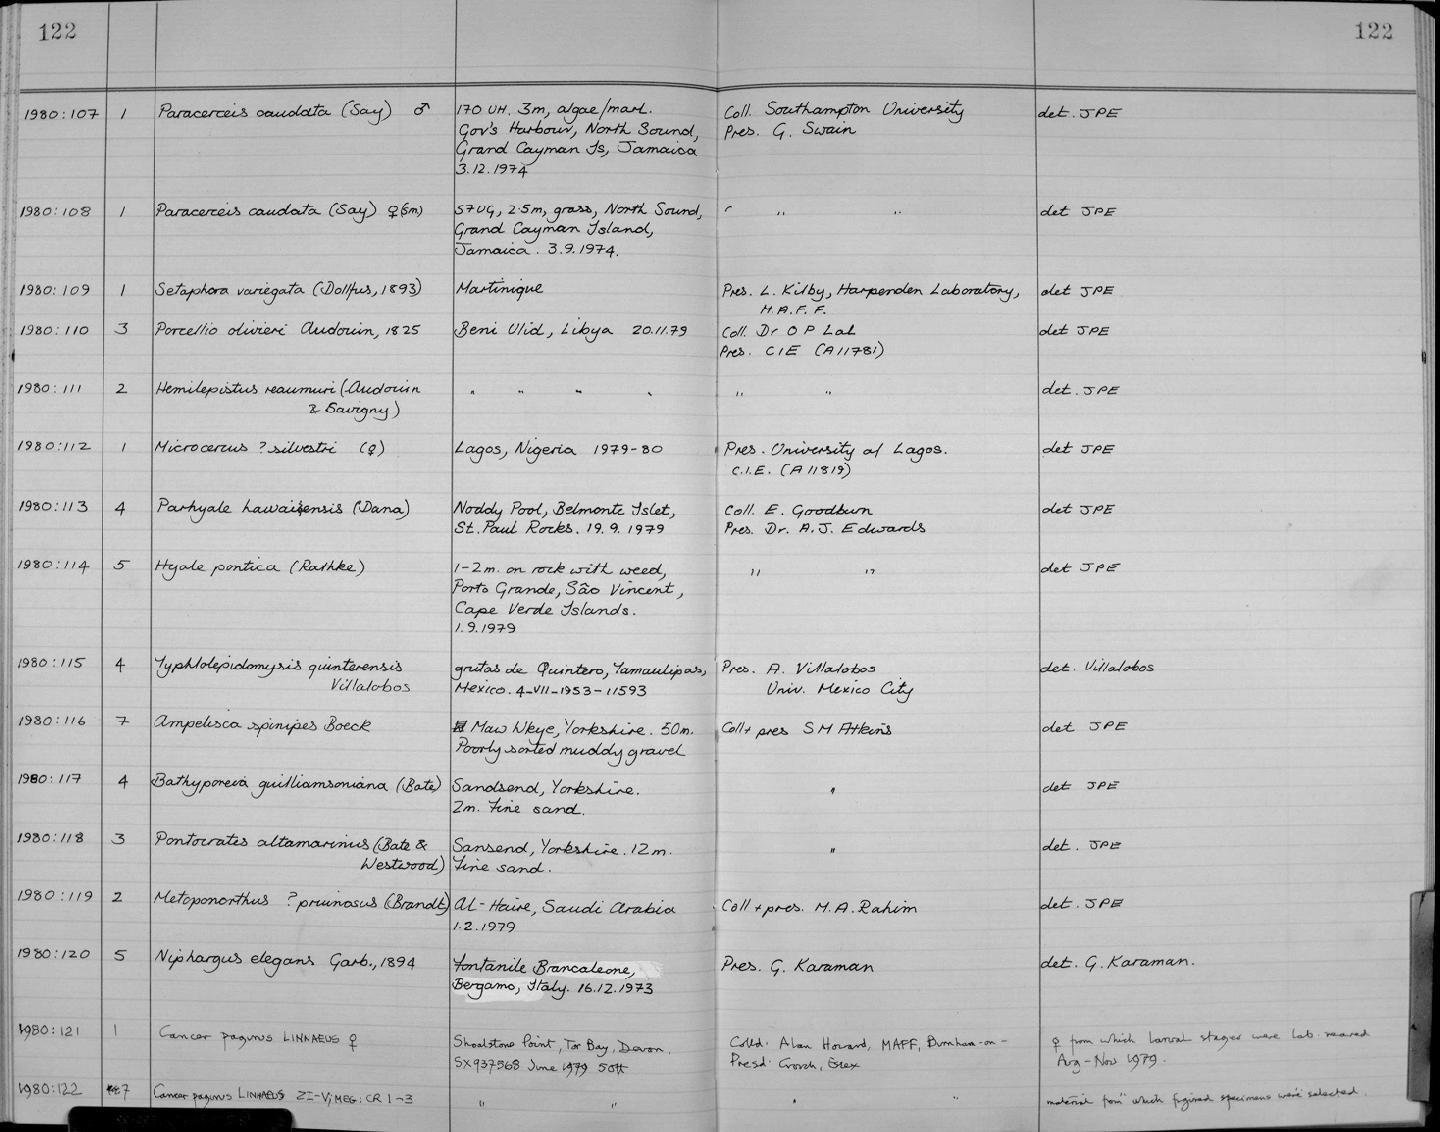 122 122
1980:107 1 Paracerceis caudata (Say) ♂ 170 UH. 3m, algae/marl. Coll. Southampton University det. JPE
Gov's Harbour, North Sound, Pres. G. Swain
Grand Cayman Is, Jamaica
3.12.1974
1980:108 1 Paracerceis caudata (Say) ♀(Im) 57UG, 2.5m, grass, North Sound, " " " det JPE
Grand Cayman Island,
Jamaica. 3.9.1974.
1980:109 1 Setaphora variegata (Dollfus, 1893) Martinique Pres. L. Kilby, Harpenden Laboratory, det JPE
M.A.F.F.
1980:110 3 Porcellio olivieri Audouin, 1825 Beni Ulid, Libya 20.11.79 Coll. Dr O P Lal det JPE
Pres. CIE (A11781)
1980:111 2 Hemilepistus reaumuri (Audouin " " " " " " det. JPE
& Savigny)
1980:112 1 Microcercus ? silvestri (♀) Lagos, Nigeria 1979-80 Pres. University of Lagos. det JPE
C.I.E. (A11819)
1980:113 4 Parhyale hawaiensis (Dana) Noddy Pool, Belmonte Islet, Coll. E. Goodburn det JPE
St. Paul Rocks. 19.9.1979 Pres. Dr. A.J. Edwards
1980:114 5 Hyale pontica (Rathke) 1-2m. on rock with weed, " " det JPE
Porto Grande, São Vincent,
Cape Verde Islands.
1.9.1979
1980:115 4 Typhlolepidomysis quinterensis grutas de Quintero, Tamaulipas, Pres. A. Villalobos det. Villalobos
Villalobos Mexico. 4-VII-1953-11593 Univ. Mexico City
1980:116 7 Ampelisca spinipes Boeck Maw Wkye, Yorkshire. 50m. Coll+ pres S M Atkins det JPE
Poorly sorted muddy gravel
1980:117 4 Bathyporeia guilliamsoniana (Bate) Sandsend, Yorkshire. " det JPE
2m. Fine sand.
1980:118 3 Pontocrates altamarinus (Bate & Sansend, Yorkshire. 12m. " det. JPE
Westwood) Fine sand.
1980:119 2 Metoponorthus ? pruinosus (Brandt) Al-Haire, Saudi Arabia Coll + pres. M.A. Rahim det. JPE
1.2.1979
1980:120 5 Niphargus elegans Garb., 1894 Fontanile Brancaleone, Pres. G. Karaman det. G. Karaman.
Bergamo, Italy. 16.12.1973
1980:121 1 Cancer pagurus LINNAEUS ♀ Shoalstone Point, Tor Bay, Devon. Colld. Alan Howard, MAFF, Burnham-on- ♀ from which larval stages were lab. reared
SX937568 June 1979 50ft Presd. Crouch, Essex Aug-Nov 1979.
1980:122 87 Cancer pagurus LINNAEUS ZI-V; MEG; CR 1-3 " " " " material from which figured specimens were selected.